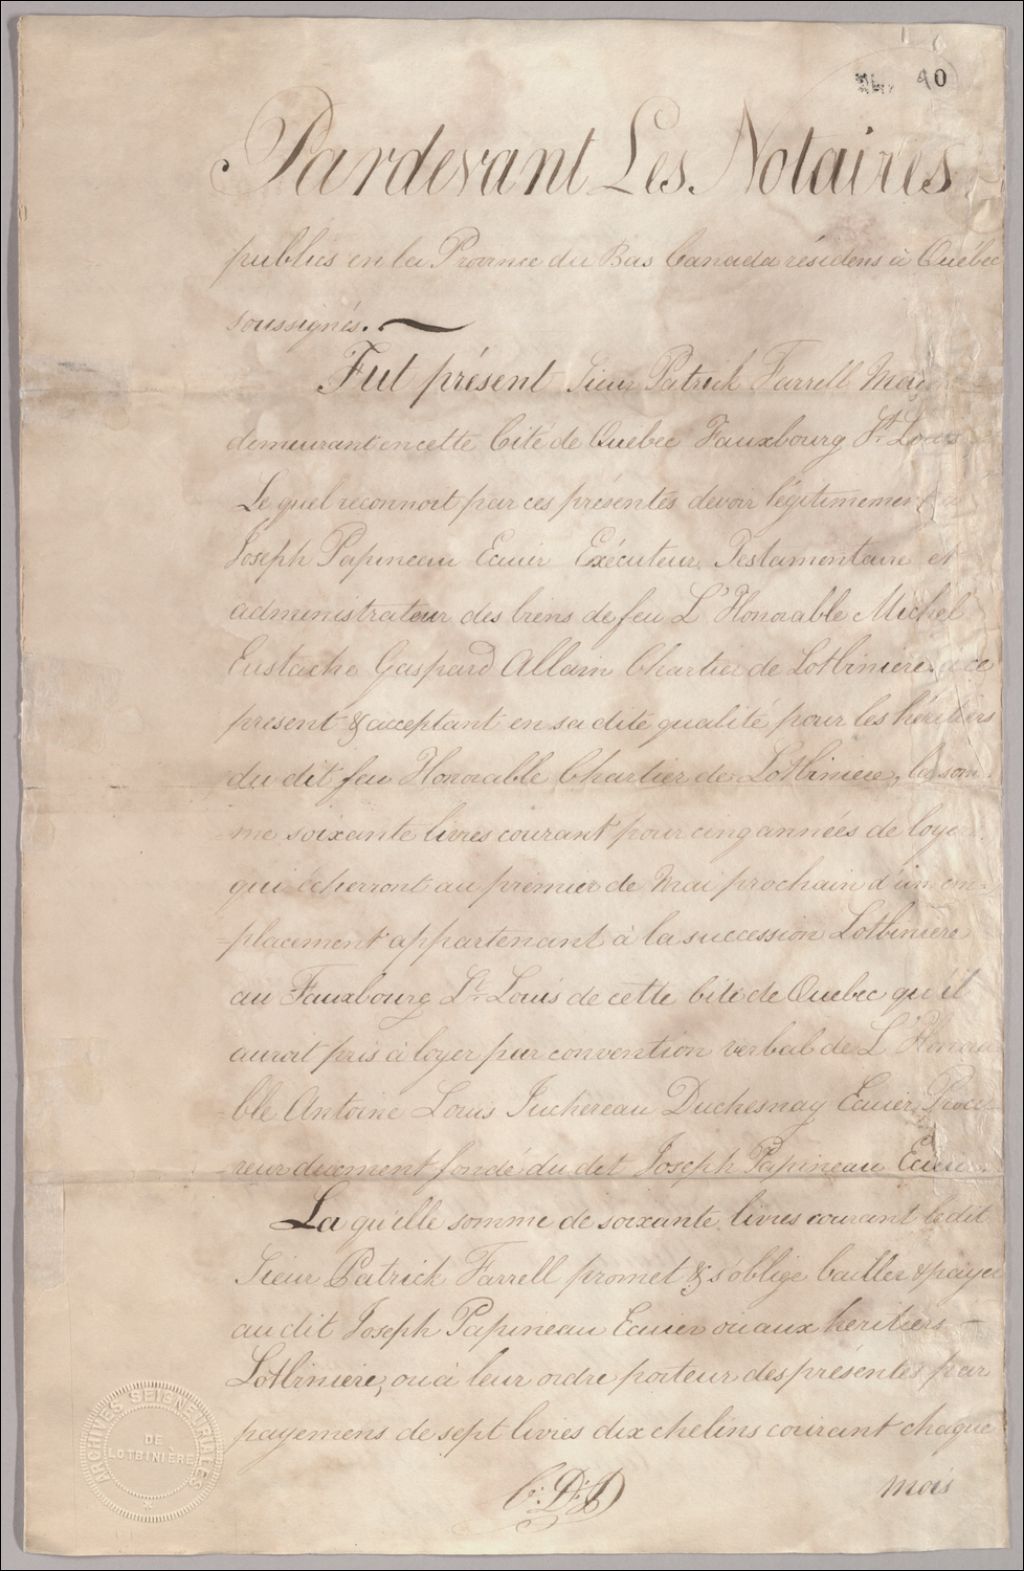 90
Pardevant Les Notaires
publics en la Province du Bas Canada résidens à Québec
soussignés.
Fut présent Sieur Patrick Farrell
demeurant en cette Cité de Québec Fauxbourg St. Louis
Le quel reconnoit par ces présentes devoir légitimement à
Joseph Papineau Ecuier Exécuteur Testamentaire et
administrateur des biens de feu L'Honorable Michel
Eustache Gaspard Allain Chartier de Lotbiniere à ce
present & acceptant en sa dite qualité pour les héritiers
du dit feu Honorable Chartier de Lotbiniere, la som
-me soixante livres courant pour cinq années de loyer
qui écherront au premier de Mai prochain d'un em-
-placement appartenant à la succession Lotbiniere
au Fauxbourg St. Louis de cette Cité de Quebec qu'il
auroit pris à loyer par convention verbal de L'Honora
-ble Antoine Louis Juchereau Duchesnay Ecuier, Procu
-reur duement fondé du dit Joseph Papineau Ecuier.
La qu'elle somme de soixante livres courant le dit
Sieur Patrick Farrell promet & s'oblige bailler & payer
au dit Joseph Papineau Ecuier ou aux heritiers –
Lotbiniere, ou à leur ordre porteur des présentes par
payemens de sept livres dix chelins courant chaque
mois
ARCHIVES SEIGNEURIALES
DE
LOTBINIÈRE